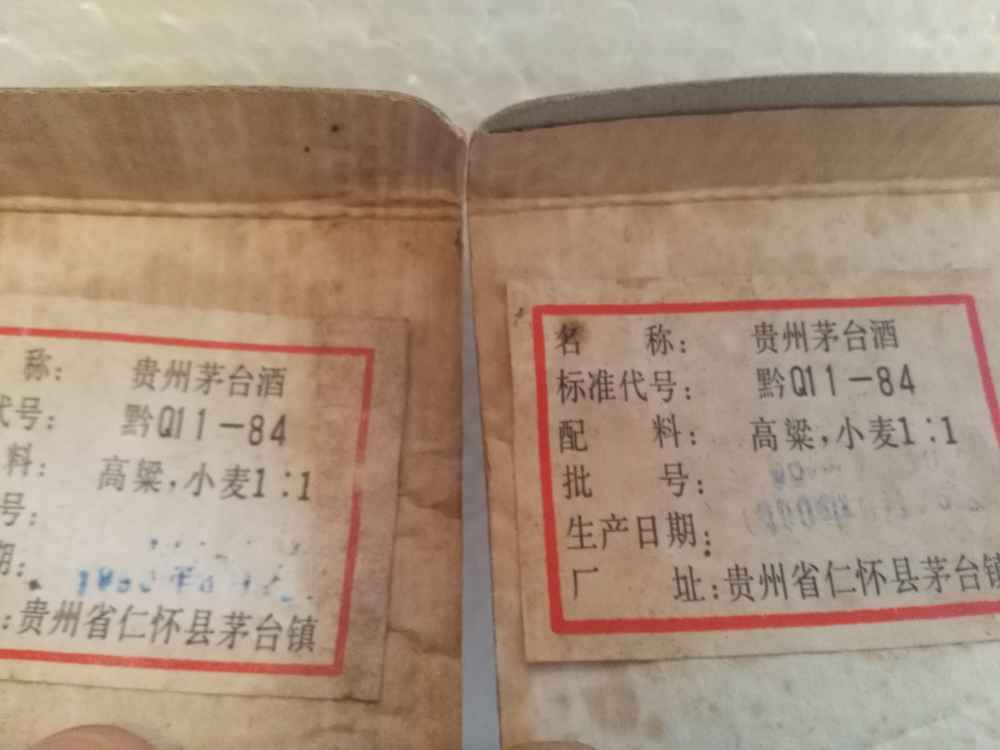 称: 贵州茅台酒
代号: 黔Q11-84
料: 高粱,小麦1:1
号:
期:
:贵州省仁怀县茅台镇
名 称: 贵州茅台酒
标准代号: 黔Q11-84
配 料: 高粱,小麦1:1
批 号:
生产日期:
厂 址:贵州省仁怀县茅台镇